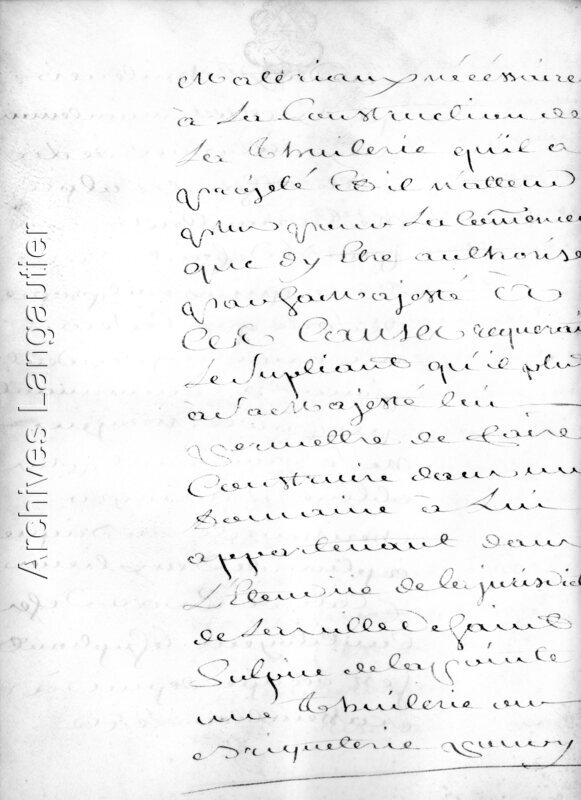 Materiaux nécéssaire
à La Construction de
La Thuilerie qu'il a
projeté Et il n'attend
plus pour La Comencer
que dy Etre authorisé
par Sa Majesté à
Ces Causes requerait
Le Supliant qu'il plut
à Sa Majesté lui
permettre de faire
Construire dans un
Domaine à Lui
appartenant dans
L'Etendue de la jurisdict
de La ville de Saint
Sulpice de la Pointe
une Thuilerie ou
Briqueterie pour y
Archives Langautier